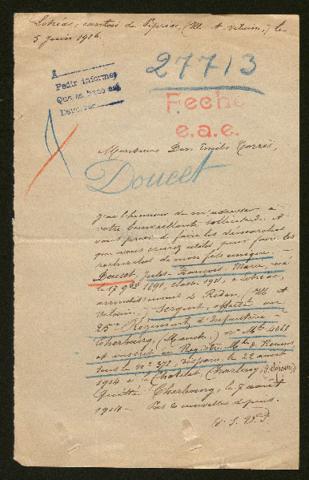 Lohéac, canton de Pipriac, (Ille et Vilaine,) le
5 Juin 1916.
Pedir informes
Que se hace en
Favor
27713
Fecho
e.a.e.
Monsieur Don Emilio Torrès,
Doucet
J'ai l'honneur de m'adresser à
votre bienveillante sollicitude. Et
vous prier de faire les démarches
que vous croirez utiles pour faire les
recherches de mon fils unique
Doucet, Jules-François, Marie, né
le 17 9bre 1891, classe 1911, à Lohéac,
arrondissement de Redon, Ille et
Vilaine. Sergent, affecté au
25e Régiment d'infanterie
Cherbourg, (Manche.) no Mle 4068
et inscrit au Registre Mle de Rennes
sous le no 371, disparu le 22 août
1914 à Charleroy,
Quitté Cherbourg, le 7 août
1914. Pas de nouvelles depuis.